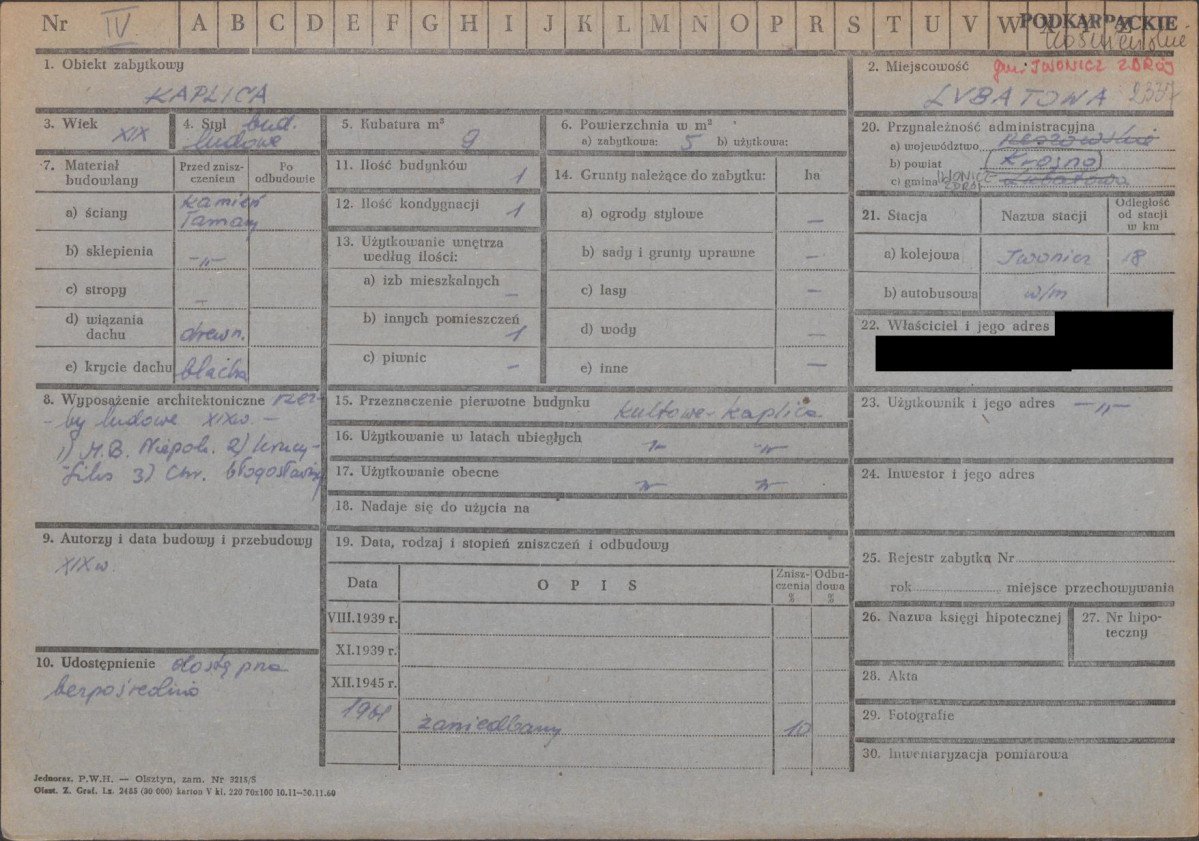 Nr IV A B C D E F G H I J K L M N O P R S T U V W X Y Z PODKARPACKIE
1. Obiekt zabytkowy
KAPLICA
2. Miejscowość gm. IWONICZ ZDRÓJ
LUBATOWA
3. Wiek
XIX
4. Styl bud.
ludowe
5. Kubatura m³
9
6. Powierzchnia w m²
a) zabytkowa: 5 b) użytkowa:
7. Materiał budowlany
Przed zniszczeniem
Po odbudowie
a) ściany kamień łamany
b) sklepienia -„-
c) stropy -
d) wiązania dachu drewn.
e) krycie dachu blacha
8. Wyposażenie architektoniczne rzeź-
-by ludowe XIXw. -
1) M.B. Niepok. 2) krucy-
-fiks 3) Chr. błogosławiący
9. Autorzy i data budowy i przebudowy
XIX w.
10. Udostępnienie dostępna
bezpośrednio
11. Ilość budynków 1
12. Ilość kondygnacji 1
13. Użytkowanie wnętrza
według ilości:
a) izb mieszkalnych -
b) innych pomieszczeń 1
c) piwnic -
14. Grunty należące do zabytku: ha
a) ogrody stylowe -
b) sady i grunty uprawne -
c) lasy -
d) wody -
e) inne -
15. Przeznaczenie pierwotne budynku kultowe-kaplica
16. Użytkowanie w latach ubiegłych -„- -„-
17. Użytkowanie obecne -„- -„-
18. Nadaje się do użycia na
19. Data, rodzaj i stopień zniszczeń i odbudowy
Data O P I S Zniszczenia % Odbudowa %
VIII.1939 r.
XI.1939 r.
XII.1945 r.
1961 zaniedbany 10
20. Przynależność administracyjna
a) województwo Rzeszowskie
b) powiat Krosno
c) gmina IWONICZ ZDRÓJ Lubatowa
21. Stacja Nazwa stacji Odległość od stacji w km
a) kolejowa Iwonicz 18
b) autobusowa w/m
22. Właściciel i jego adres
23. Użytkownik i jego adres -„-
24. Inwestor i jego adres
25. Rejestr zabytku Nr
rok miejsce przechowywania
26. Nazwa księgi hipotecznej
27. Nr hipoteczny
28. Akta
29. Fotografie
30. Inwentaryzacja pomiarowa
Jednoraz. P.W.H. — Olsztyn, zam. Nr 3215/S
Olszt. Z. Graf. Lz. 2485 (30 000) karton V kl. 220 70x100 10.11—30.11.60